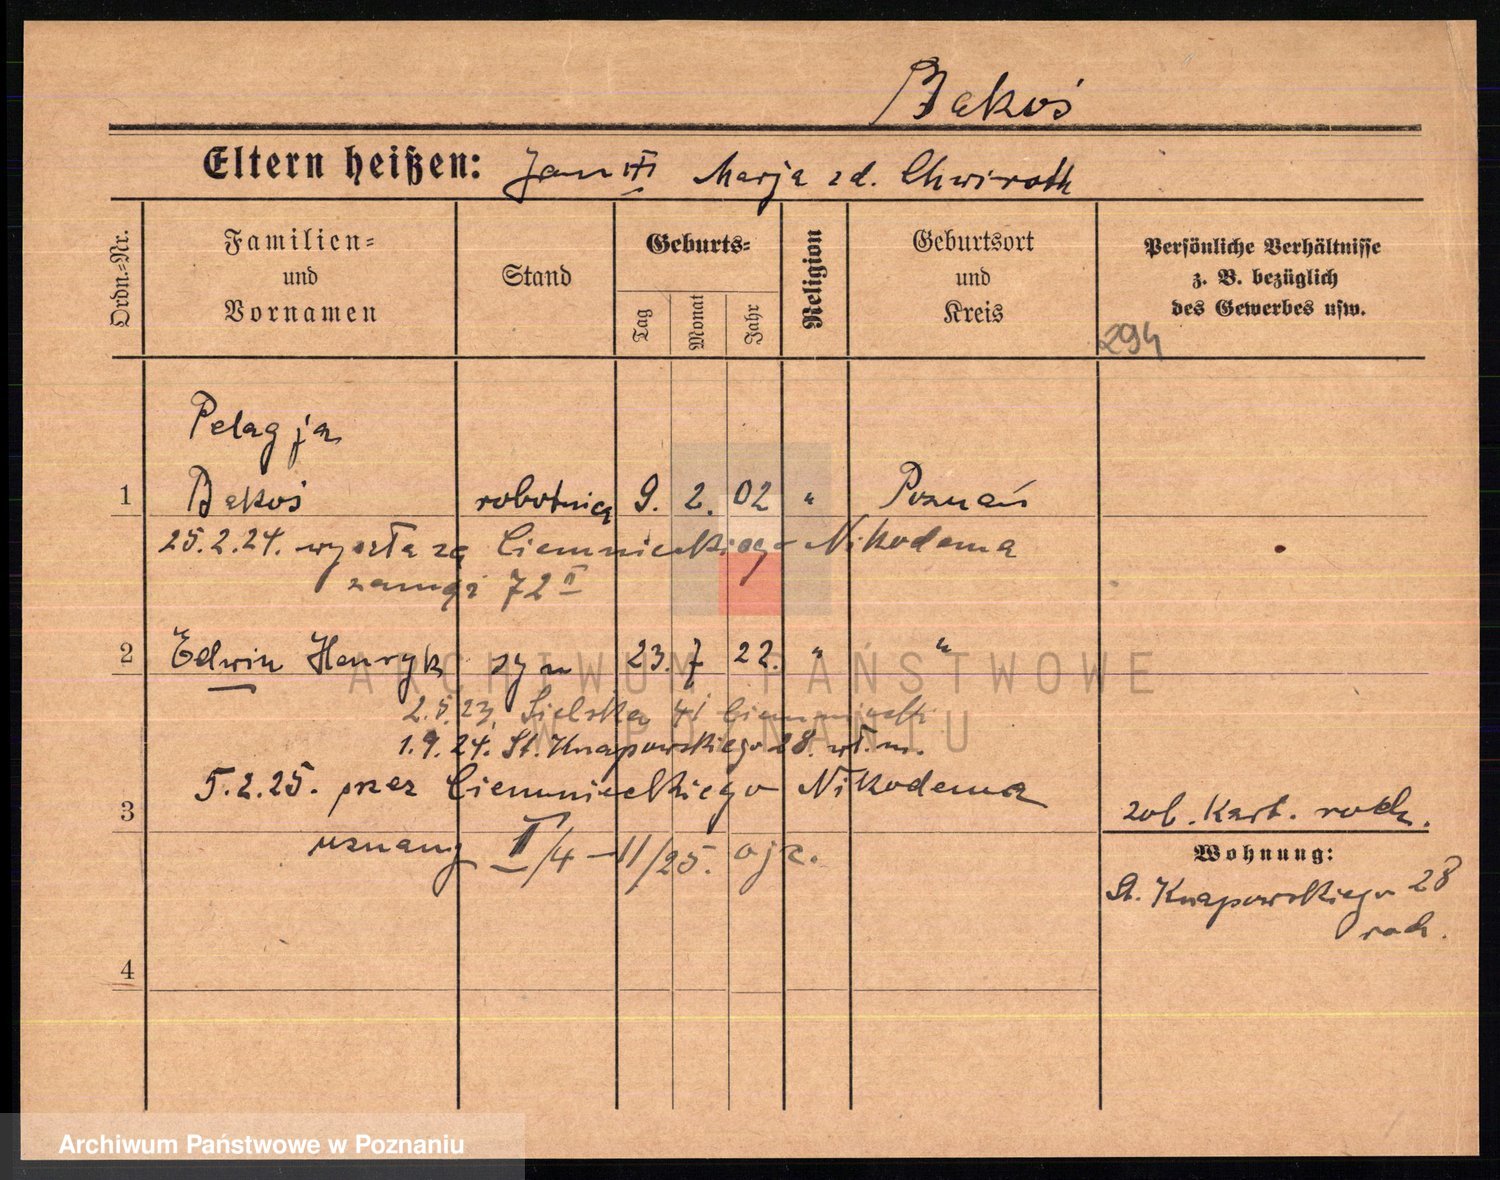 Bąkoś
Eltern heißen: Jan III Marja zd. Chwiroth
Ordn.-Nr.
Familien- und Vornamen
Stand
Geburts-
Tag
Monat
Jahr
Religion
Geburtsort und Kreis
Persönliche Verhältnisse
z. B. bezüglich
des Gewerbes usw.
294
Pelagja
1 Bąkoś robotnica 9. 2. 02 " Poznań
25.2.24. wyszła za Ciemnieckiego Nikodema
zamąż 72 II
2 Edwin Henryk syn 23. 7 22. " "
2.5.23. Sielska 41 Ciemniecki
1.9.24. St. Knapowskiego 28. wł. m.
5.2.25. przez Ciemnieckiego Nikodema
3
uznany II/4-11/25. ojc.
zob. Kart. rodz.
Wohnung:
St. Knapowskiego 28
rodz.
4
ARCHIWUM PAŃSTWOWE
W POZNANIU
Archiwum Państwowe w Poznaniu